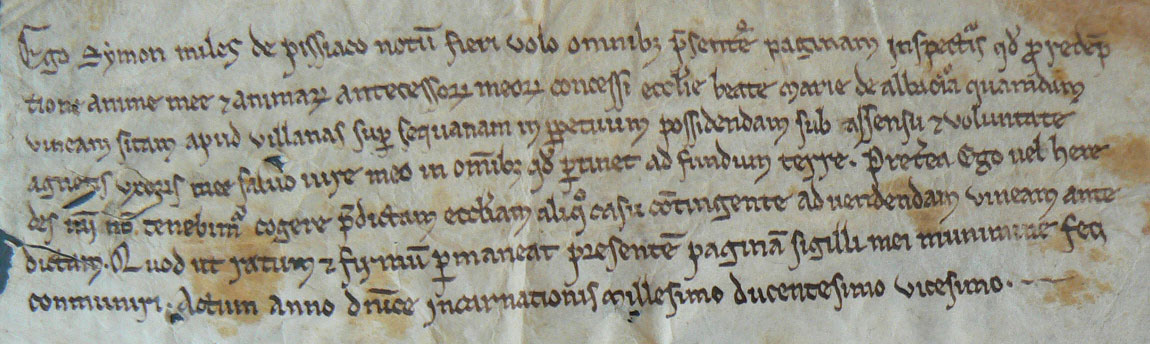 Ego Symon miles de pissiaco notū fieri volo omnibꝫ p̄sentē paginam inspectꝰis qđ ꝓ redēp
tione anime mee ⁊ animaꝝ antecessoꝝ meoꝝ concessi eccl̄ie beate Marie de quamdam
vineam sitam apud villanas suꝑ sequanam in ꝑpetuum possidendam sub assensu ⁊ voluntate
agnetis uxoris mee salvo iure meo in om̄ibꝫ qđ ꝑtinet ad fundum terre. Pret̄ea Ego vel here
des mī nō tenebimꝰ cogere p̄dictam eccl̄iam aliq̊ casu cōtingente ad vendendam vineam ante
dictam. Quod ut ratum ⁊ firmū ꝑmaneat presentē paginā sigilli mei munimine feci
conmuniri. Actum anno dn̄ice incarnationis Millesimo ducentesimo vicesimo.